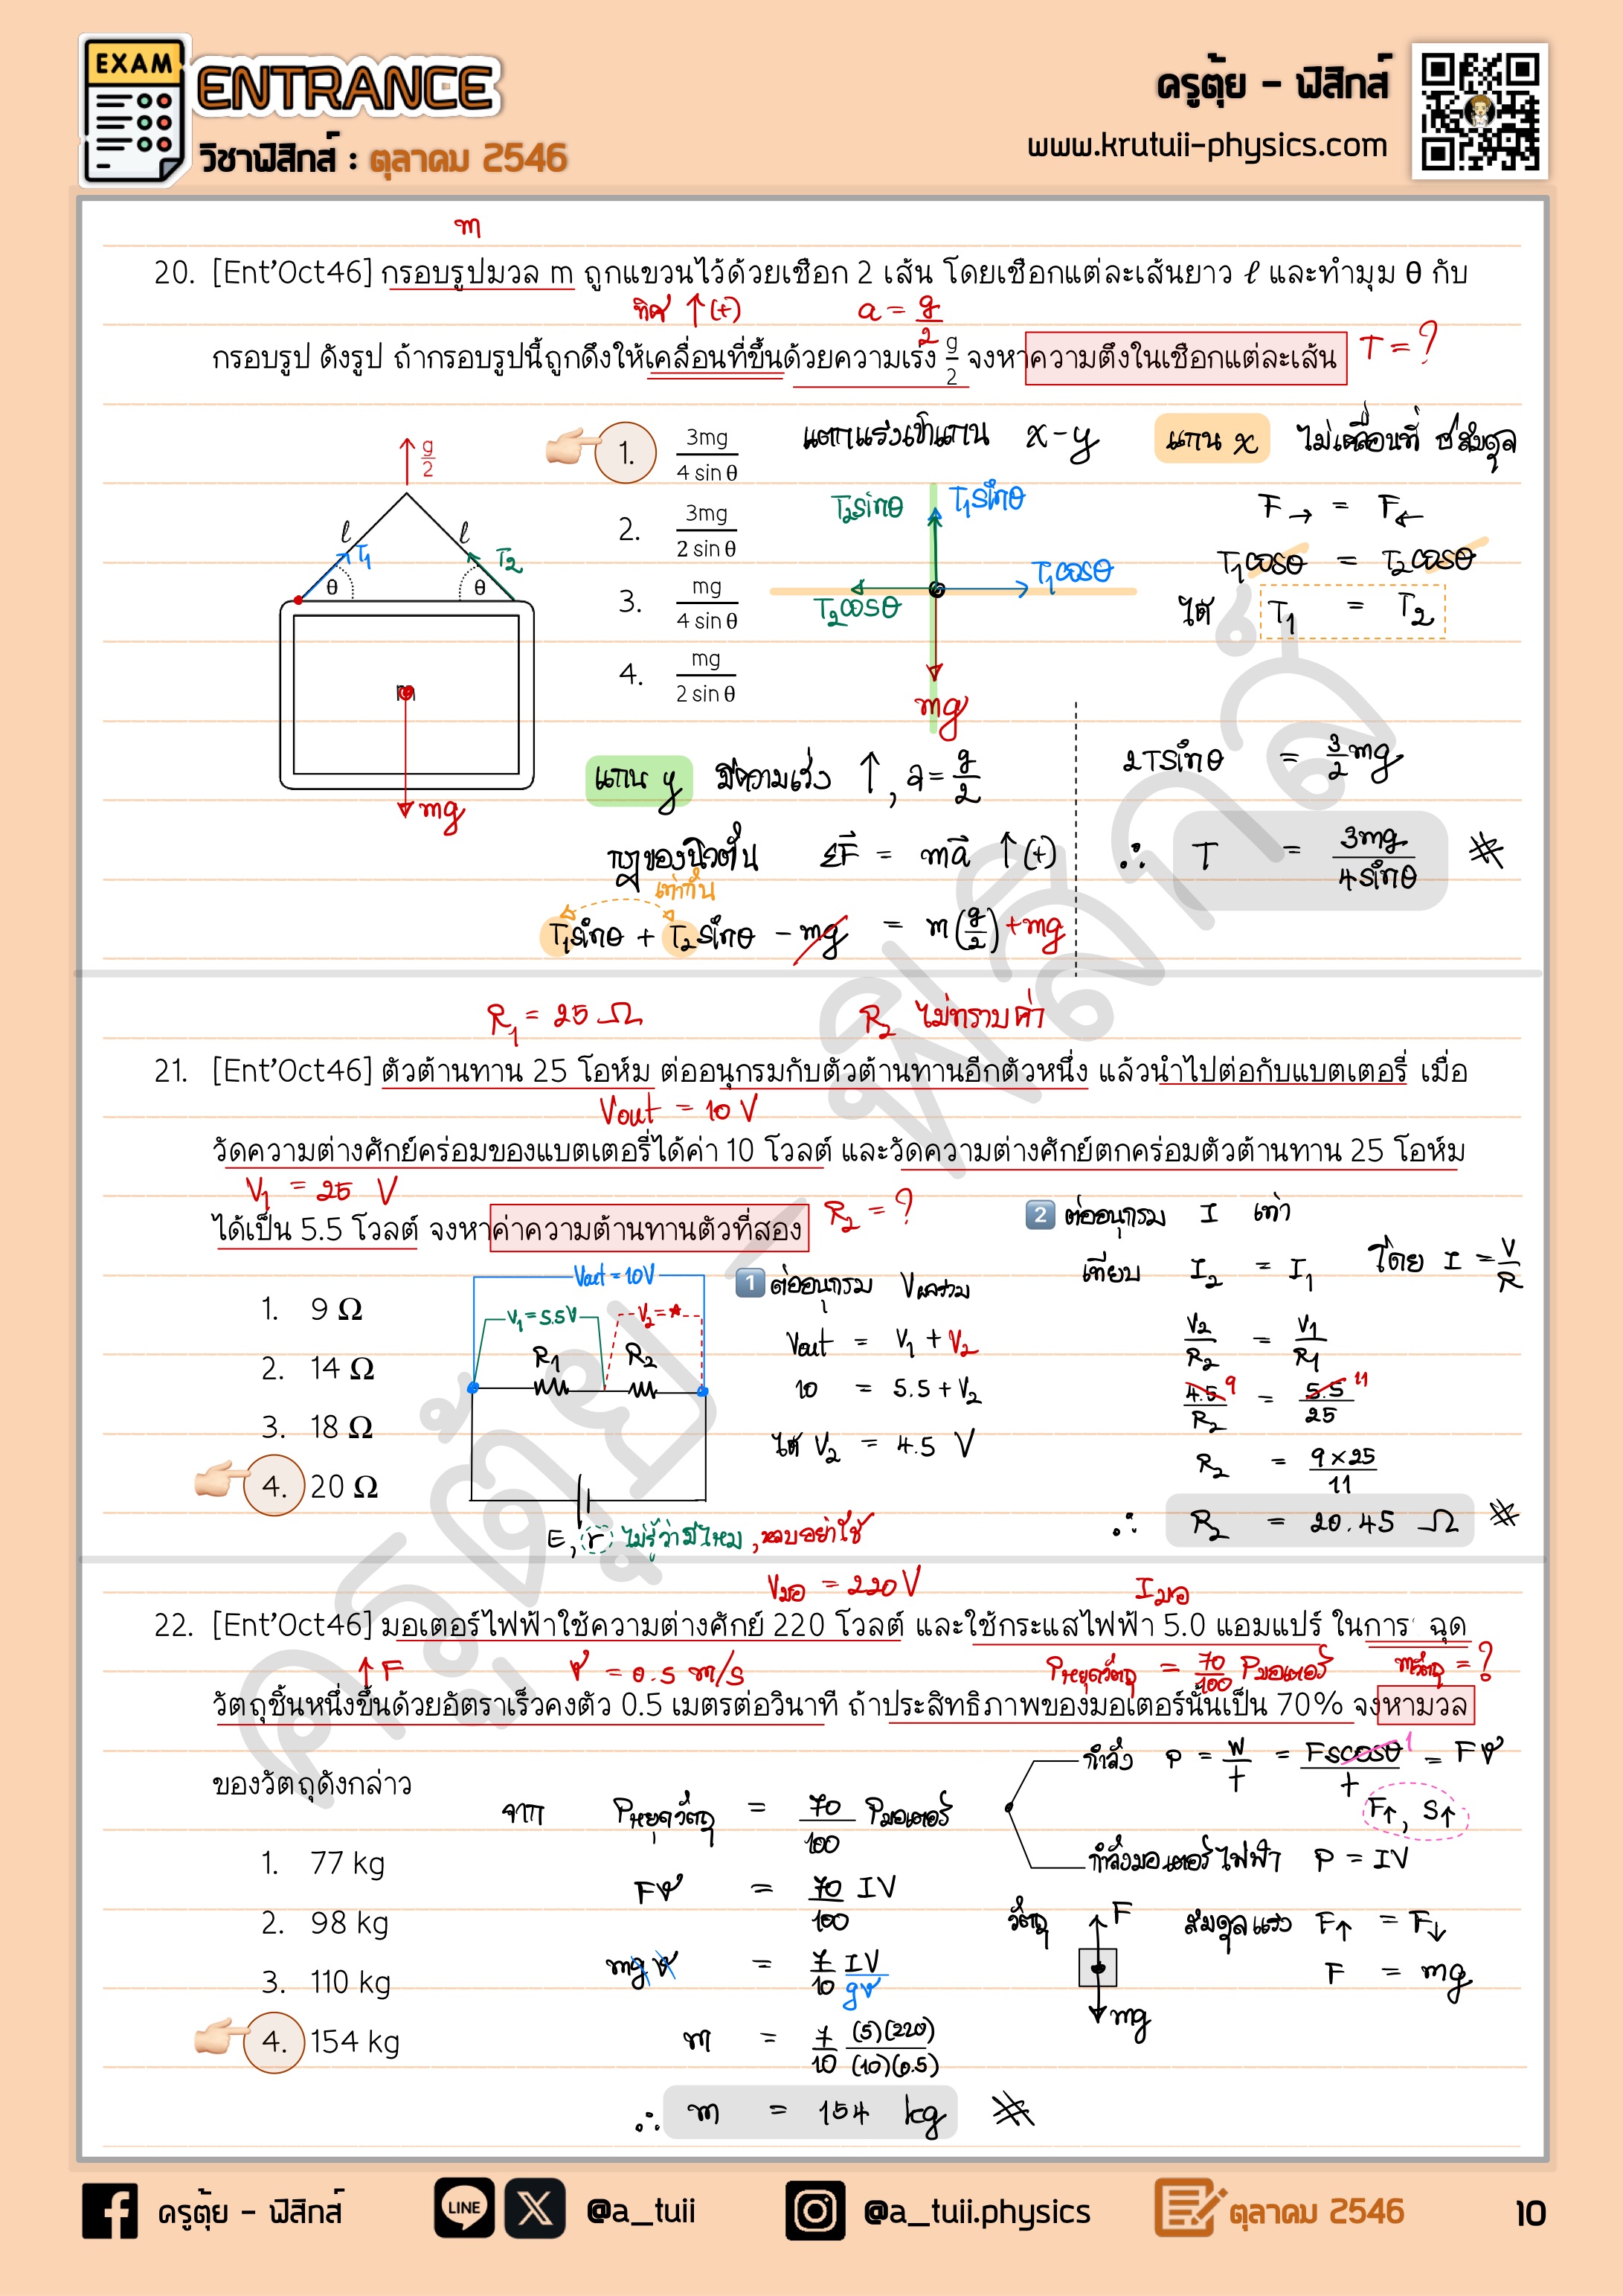 EXAM
ENTRANCE
วิชาฟิสิกส์ : ตุลาคม 2546
ครูตุ้ย - ฟิสิกส์
www.krutuii-physics.com
m
20. [Ent'Oct46] กรอบรูปมวล m ถูกแขวนไว้ด้วยเชือก 2 เส้น โดยเชือกแต่ละเส้นยาว ℓ และทำมุม θ กับ
ทิศ ↑(+) a = g/2
กรอบรูป ดังรูป ถ้ากรอบรูปนี้ถูกดึงให้เคลื่อนที่ขึ้นด้วยความเร่ง g/2 จงหาความตึงในเชือกแต่ละเส้น T = ?
g/2
ℓ ℓ
T₁ T₂
θ θ
m
mg
1. 3mg / 4 sin θ
2. 3mg / 2 sin θ
3. mg / 4 sin θ
4. mg / 2 sin θ
แตกแรงเข้าแกน x-y
T₂sinθ T₁sinθ
T₂cosθ T₁cosθ
mg
แกน x ไม่เคลื่อนที่ สมดุล
F→ = F←
T₁cosθ = T₂cosθ
ได้ T₁ = T₂
แกน y มีความเร่ง ↑, a = g/2
กฎของนิวตัน ΣF = ma ↑(+)
เท่ากัน
T₁sinθ + T₂sinθ - mg = m(g/2) +mg
2Tsinθ = 3/2 mg
∴ T = 3mg / 4sinθ
R₁ = 25 Ω R₂ ไม่ทราบค่า
21. [Ent'Oct46] ตัวต้านทาน 25 โอห์ม ต่ออนุกรมกับตัวต้านทานอีกตัวหนึ่ง แล้วนำไปต่อกับแบตเตอรี่ เมื่อ
Vout = 10 V
วัดความต่างศักย์คร่อมของแบตเตอรี่ได้ค่า 10 โวลต์ และวัดความต่างศักย์ตกคร่อมตัวต้านทาน 25 โอห์ม
V₁ = 25 V
ได้เป็น 5.5 โวลต์ จงหาค่าความต้านทานตัวที่สอง R₂ = ?
1. 9 Ω
2. 14 Ω
3. 18 Ω
4. 20 Ω
Vout = 10V
V₁ = 5.5V V₂ = ★
R₁ R₂
E, r ไม่รู้ว่ามีไหม, หลบอย่าใช้
1 ต่ออนุกรม Vผลรวม
Vout = V₁ + V₂
10 = 5.5 + V₂
ได้ V₂ = 4.5 V
2 ต่ออนุกรม I เท่า
เทียบ I₂ = I₁ โดย I = V/R
V₂/R₂ = V₁/R₁
4.5 9 / R₂ = 5.5 11 / 25
R₂ = 9 × 25 / 11
∴ R₂ = 20.45 Ω
Vมอ = 220 V Iมอ
22. [Ent'Oct46] มอเตอร์ไฟฟ้าใช้ความต่างศักย์ 220 โวลต์ และใช้กระแสไฟฟ้า 5.0 แอมแปร์ ในการ ฉุด
↑F v = 0.5 m/s Pหยุดวัตถุ = 70/100 Pมอเตอร์ mวัตถุ = ?
วัตถุชิ้นหนึ่งขึ้นด้วยอัตราเร็วคงตัว 0.5 เมตรต่อวินาที ถ้าประสิทธิภาพของมอเตอร์นั้นเป็น 70% จงหามวล
ของวัตถุดังกล่าว
1. 77 kg
2. 98 kg
3. 110 kg
4. 154 kg
จาก Pหยุดวัตถุ = 70/100 Pมอเตอร์
Fv = 70/100 IV
mgv = 7/10 IV/gv
m = 7/10 (5)(220)/(10)(0.5)
∴ m = 154 kg
กำลัง P = W/t = Fscosθ 1 / t = Fv
F↑, S↑
กำลังมอเตอร์ไฟฟ้า P = IV
วัตถุ F
mg
สมดุลแรง F↑ = F↓
F = mg
ครูตุ้ย - ฟิสิกส์
ครูตุ้ย - ฟิสิกส์
LINE
@a_tuii
@a_tuii.physics
ตุลาคม 2546
10